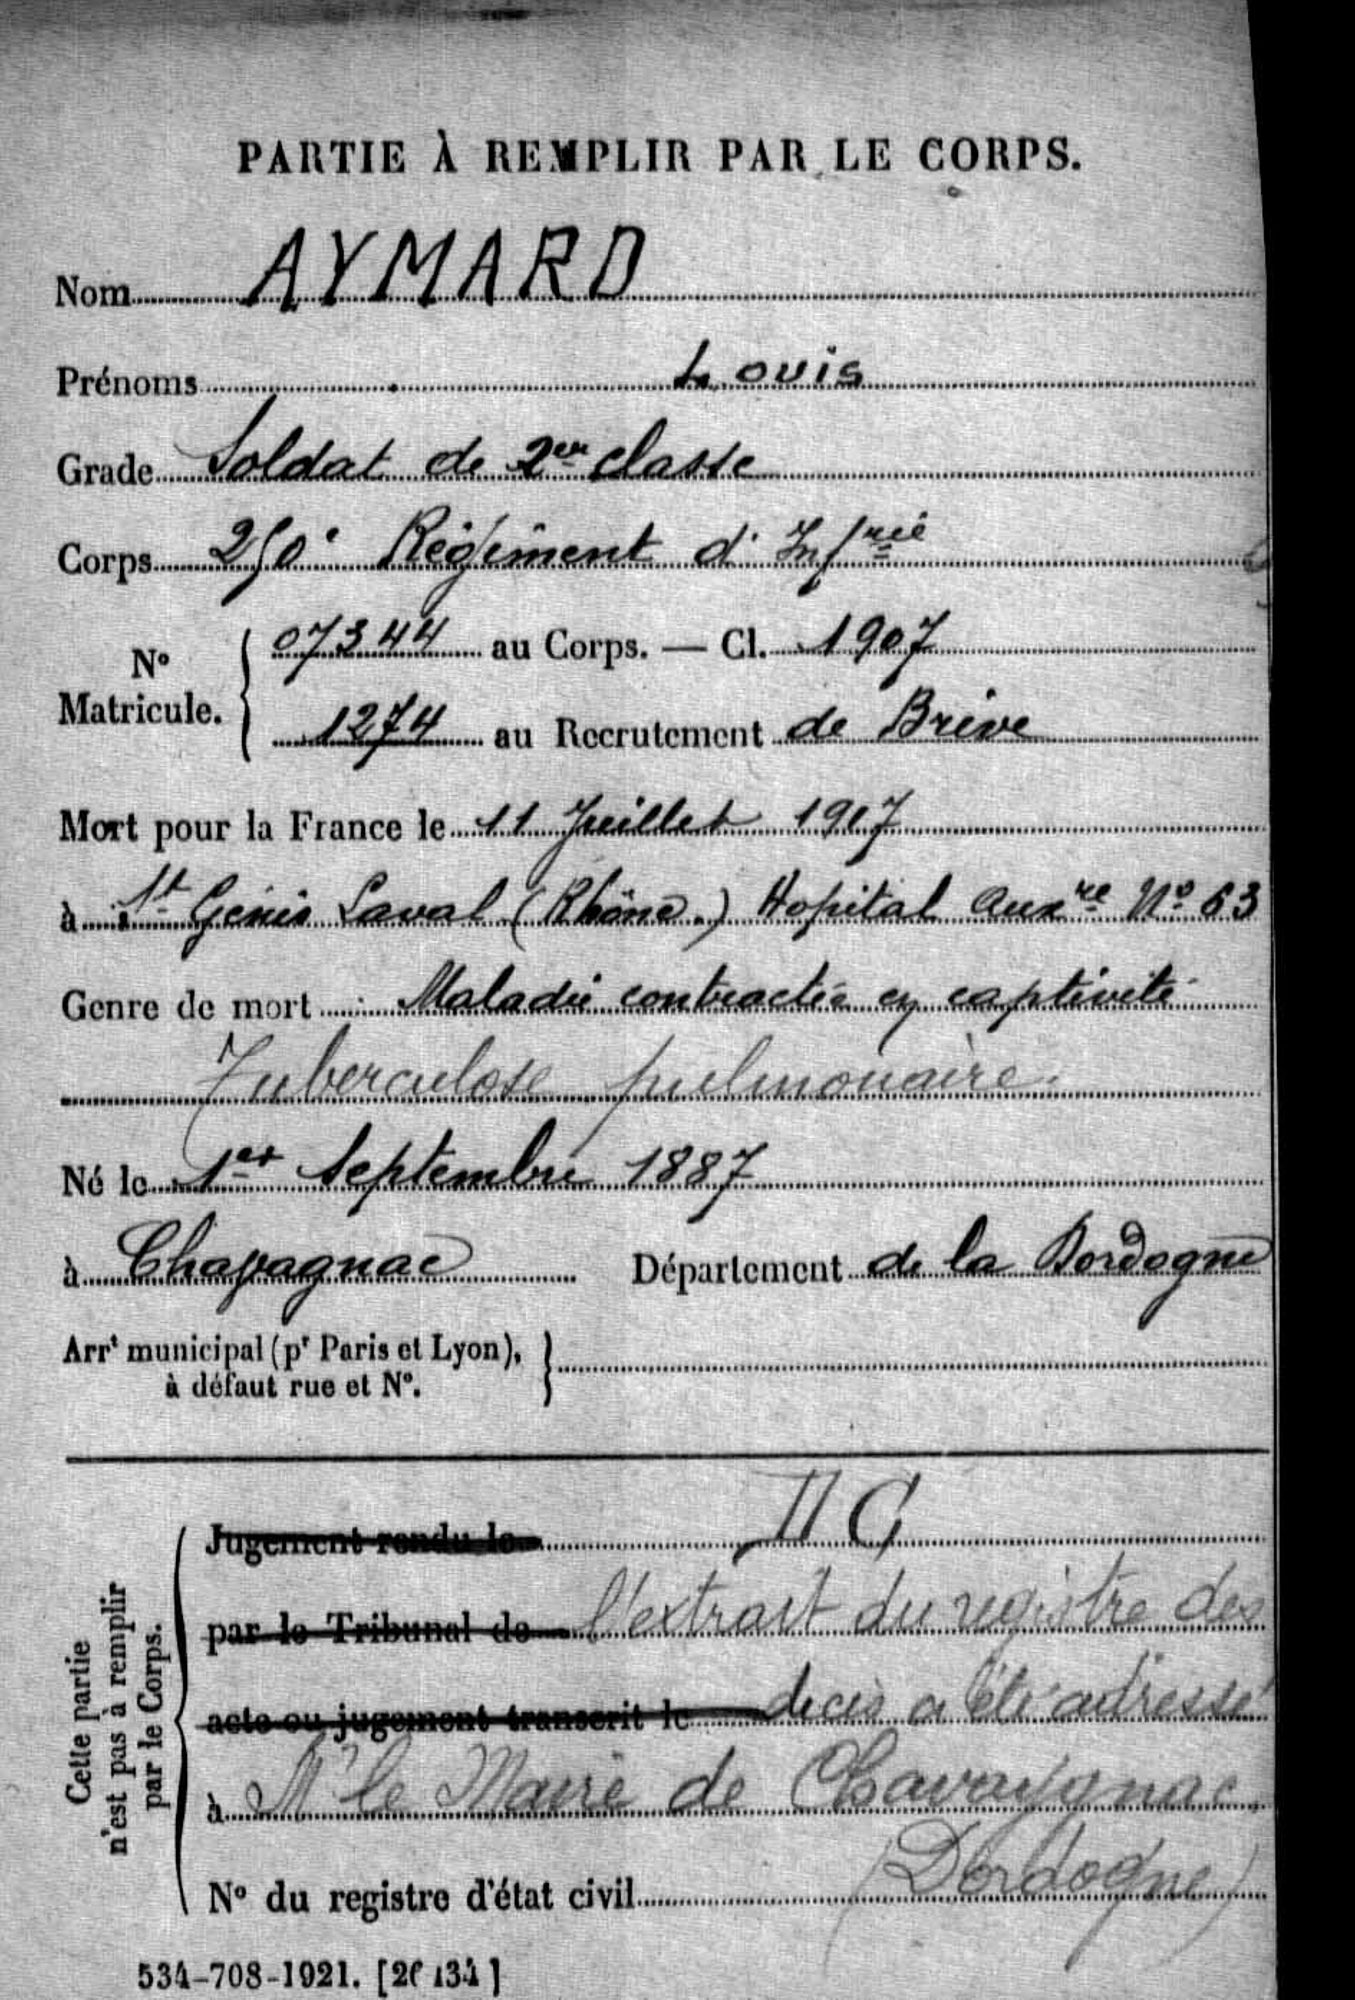 PARTIE À REMPLIR PAR LE CORPS.
Nom AYMARD
Prénoms Louis
Grade Soldat de 2em classe
Corps 250e Régiment d'Infrie
N° Matricule. 07344 au Corps. — Cl. 1907
1274 au Recrutement de Brive
Mort pour la France le 11 Juillet 1917
à St Genis Laval (Rhône.) Hopital Auxre N° 63
Genre de mort Maladie contractée en captivité
Tuberculose pulmonaire.
Né le 1er Septembre 1887
à Chavagnac Département de la Dordogne
Arrt municipal (pr Paris et Lyon),
à défaut rue et N°.
Cette partie
n'est pas à remplir
par le Corps.
Jugement rendu le
par le Tribunal de l'extrait du registre des
acte ou jugement transcrit le décès a été adressé
à Mr le Maire de Chavaygnac
N° du registre d'état civil (Dordogne)
534-708-1921.